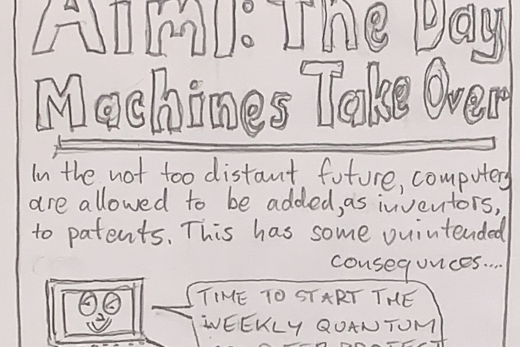 AIMI: The Day
Machines Take Over
In the not too distant future, computers
are allowed to be added, as inventors,
to patents. This has some unintended
consequnces....
TIME TO START THE
WEEKLY QUANTUM
PROJECT